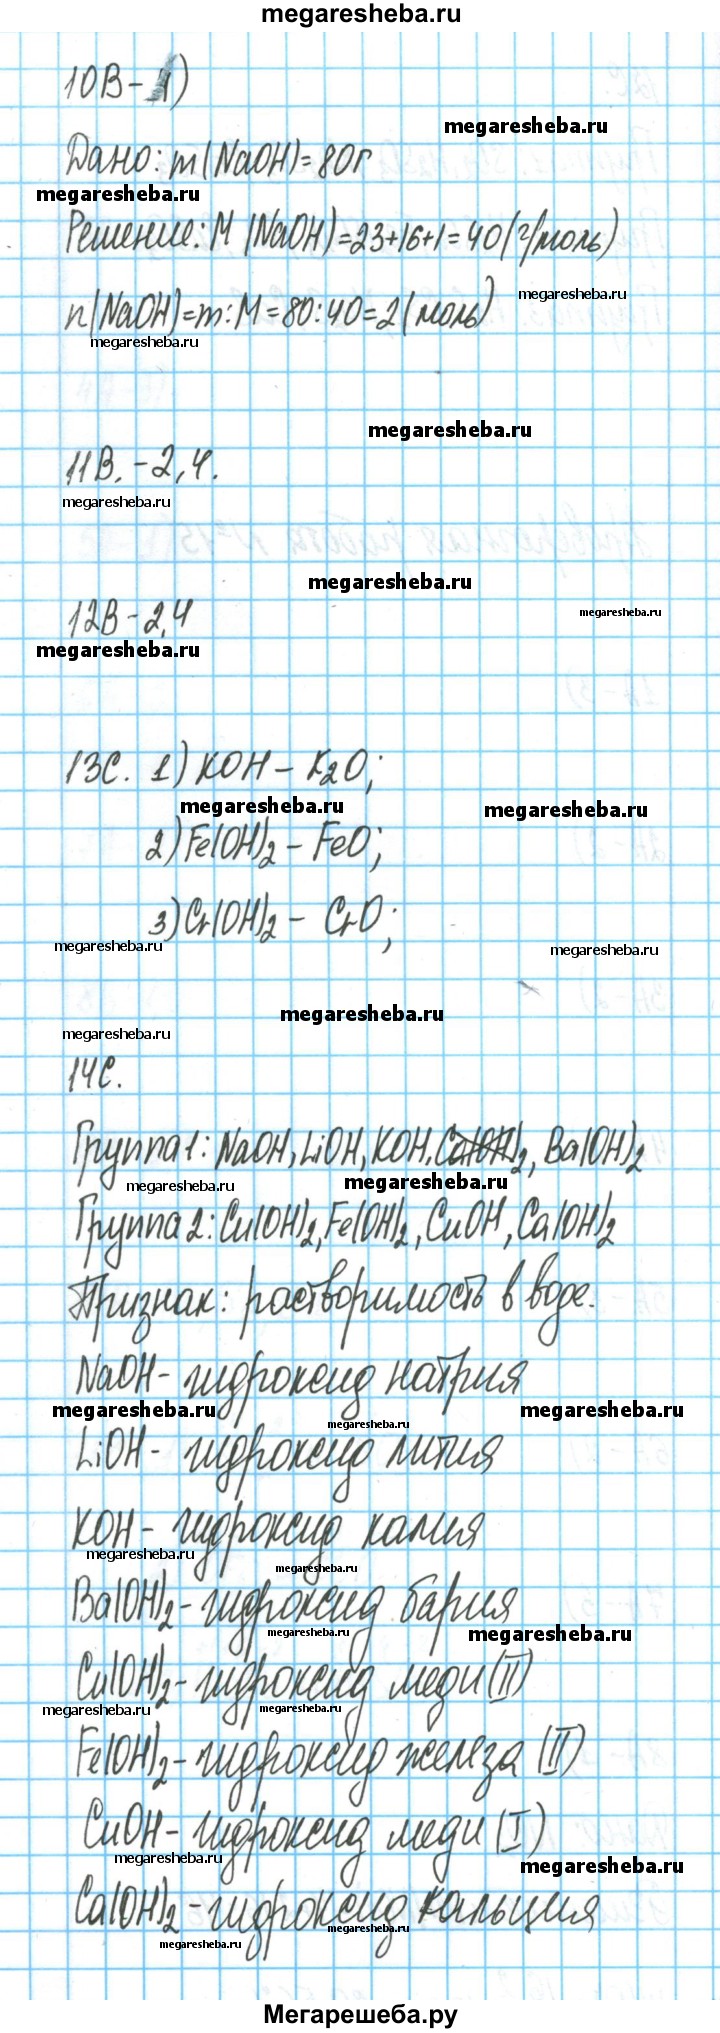 megaresheba.ru
10В-1)
megaresheba.ru
Дано: m(NaOH)=80г
megaresheba.ru
Решение: M(NaOH)=23+16+1=40(г/моль)
megaresheba.ru
n(NaOH)=m:M=80:40=2(моль)
megaresheba.ru
megaresheba.ru
11В.-2,4.
megaresheba.ru
megaresheba.ru
12В-2,4
megaresheba.ru
megaresheba.ru
13С. 1) KOH - K2O;
megaresheba.ru
megaresheba.ru
2) Fe(OH)2 - FeO;
3) Cr(OH)2 - CrO;
megaresheba.ru
megaresheba.ru
megaresheba.ru
megaresheba.ru
14С.
Группа 1: NaOH, LiOH, KOH, Ca(OH)2, Ba(OH)2
megaresheba.ru
megaresheba.ru
Группа 2: Cu(OH)2, Fe(OH)2, CuOH, Ca(OH)2
Признак: растворимость в воде.
NaOH - гидроксид натрия
megaresheba.ru
megaresheba.ru
megaresheba.ru
LiOH - гидроксид лития
KOH - гидроксид калия
megaresheba.ru
megaresheba.ru
Ba(OH)2 - гидроксид бария
megaresheba.ru
megaresheba.ru
Cu(OH)2 - гидроксид меди (II)
megaresheba.ru
megaresheba.ru
Fe(OH)2 - гидроксид железа (II)
CuOH - гидроксид меди (I)
megaresheba.ru
megaresheba.ru
Ca(OH)2 - гидроксид кальция
megaresheba.ru
megaresheba.ru
Мегарешеба.ру